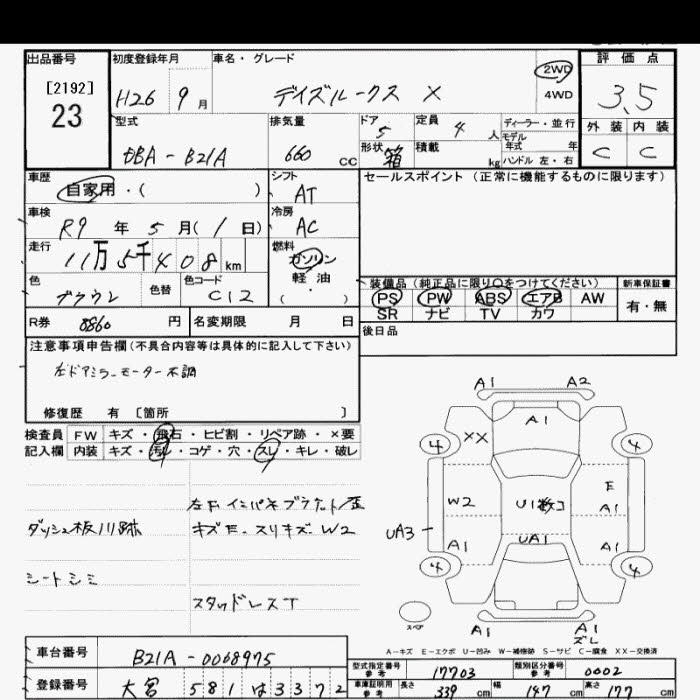 出品番号 初度登録年月 車名・グレード 評価点
[2192] 23 H26 9月 デイズルークス X 2WD 4WD 3.5
型式 排気量 ドア 定員 ディーラー・並行 外装 内装
DBA-B21A 660 cc 5 4人 モデル年式 年 C C
形状 箱 積載 kg ハンドル 左・右
車歴 シフト セールスポイント (正常に機能するものに限ります)
自家用・( ) AT
車検 冷房
R9年 5月( 1日) AC
走行 燃料
11万5千408km ガソリン
色 色替 色コード 軽油
ブラウン C12 ( ・ )
装備品 (純正品に限り○をつけてください) 新車保証書
PS PW ABS エアB AW 有・無
SR ナビ TV カワ
R券 8860円 名変期限 月 日
後日品
注意事項申告欄(不具合内容等は具体的に記入して下さい)
左ドアミラーモーター不調
修復歴 有 [箇所 ]
検査員 FW キズ・飛石・ヒビ割・リペア跡・×要
記入欄 内装 キズ・汚レ・コゲ・穴・スレ・キレ・破レ
ダッシュ板川跡
シートシミ
キズE.スリキズ.W2
スタッドレスT
A1 A2
A1
4 XX 4
W2 U1数コ E
A1
UA3 UA1
A1 A1
4 4
スペア A1 A1
ズレ
A-キズ E-エクボ U-凹み W-補修跡 S-サビ C-腐食 XX-交換済
車台番号 B21A-0068975
型式指定番号 参考 17703 類別区分番号 参考 0002
登録番号 大宮 581 は3372
車庫証明用 参考 長さ 339cm 幅 147cm 高さ 177cm